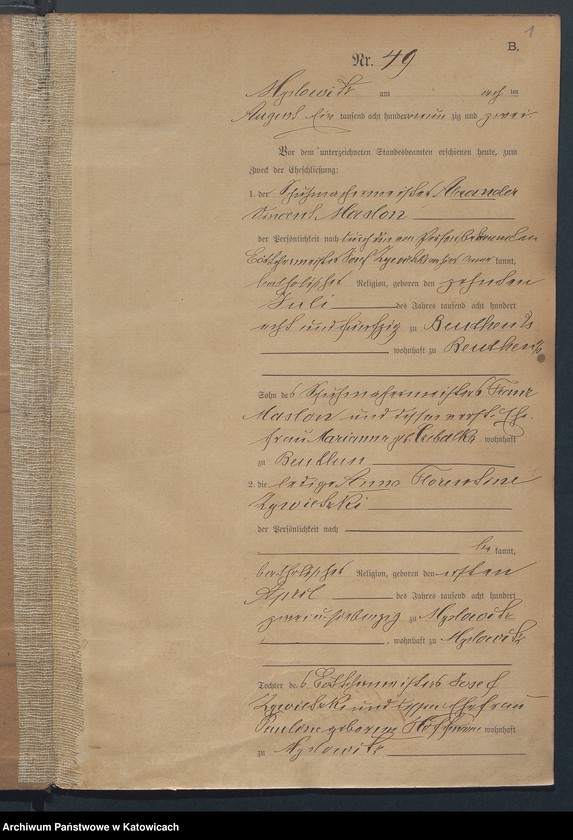 1
B.
Nr. 49
Myslowitz am acht en
August Ein tausend acht hundert neun zig und zwei
Vor dem unterzeichneten Standesbeamten erschienen heute, zum
Zweck der Eheschließung:
1. der Schuhmachermeister
Vincent Maslon
der Persönlichkeit nach durch den von Person bekannten
Böttchermeister Josef kannt,
katholischer Religion, geboren den zehnten
Juli des Jahres tausend acht hundert
acht und fünfzig zu Beuthen
wohnhaft zu Beuthen
Sohn des Schuhmachermeisters Franz
Maslon und dessen verst. Ehe-
frau Marianna geb. wohnhaft
zu Beuthen
2. die ledige Anna Florentine
Zywietzki
der Persönlichkeit nach
be kannt,
katholischer Religion, geboren den ersten
April des Jahres tausend acht hundert
zwei u. siebenzig zu Myslowitz
, wohnhaft zu Myslowitz
Tochter des Böttchermeisters Josef
Zywietzki und dessen Ehefrau
Pauline geborene wohnhaft
zu Myslowitz
Archiwum Państwowe w Katowicach